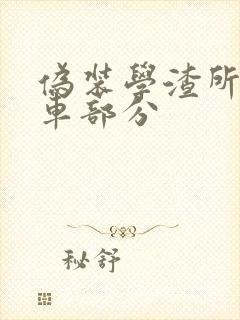 偽裝學渣所
車部分
秘舒